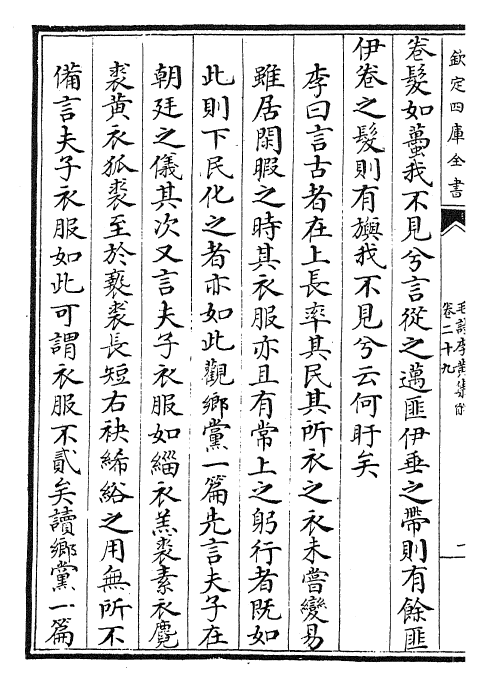 欽定四庫全書
毛詩李黃集解
卷二十九
一
卷髮如蠆我不見兮言從之邁匪伊垂之帶則有餘匪
伊卷之髮則有旟我不見兮云何盱矣
李曰言古者在上長率其民其所衣之衣未嘗變易
雖居閑暇之時其衣服亦且有常上之躬行者既如
此則下民化之者亦如此觀鄉黨一篇先言夫子在
朝廷之儀其次又言夫子衣服如緇衣羔裘素衣麑
裘黃衣狐裘至於褻裘長短右袂絺綌之用無所不
備言夫子衣服如此可謂衣服不貳矣讀鄉黨一篇